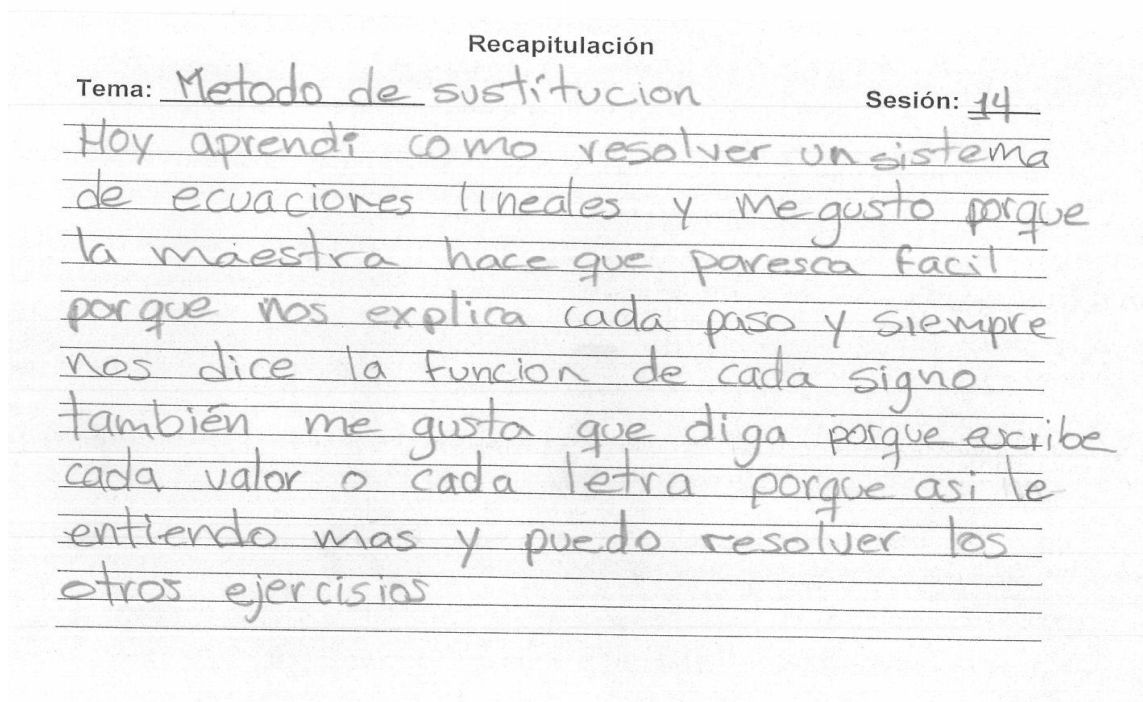 Recapitulación
Tema: Metodo de sustitucion Sesión: 14
Hoy aprendi como resolver un sistema
de ecuaciones lineales y me gusto porque
la maestra hace que paresca facil
porque nos explica cada paso y siempre
nos dice la funcion de cada signo
también me gusta que diga porque escribe
cada valor o cada letra porque asi le
entiendo mas y puedo resolver los
otros ejercisios